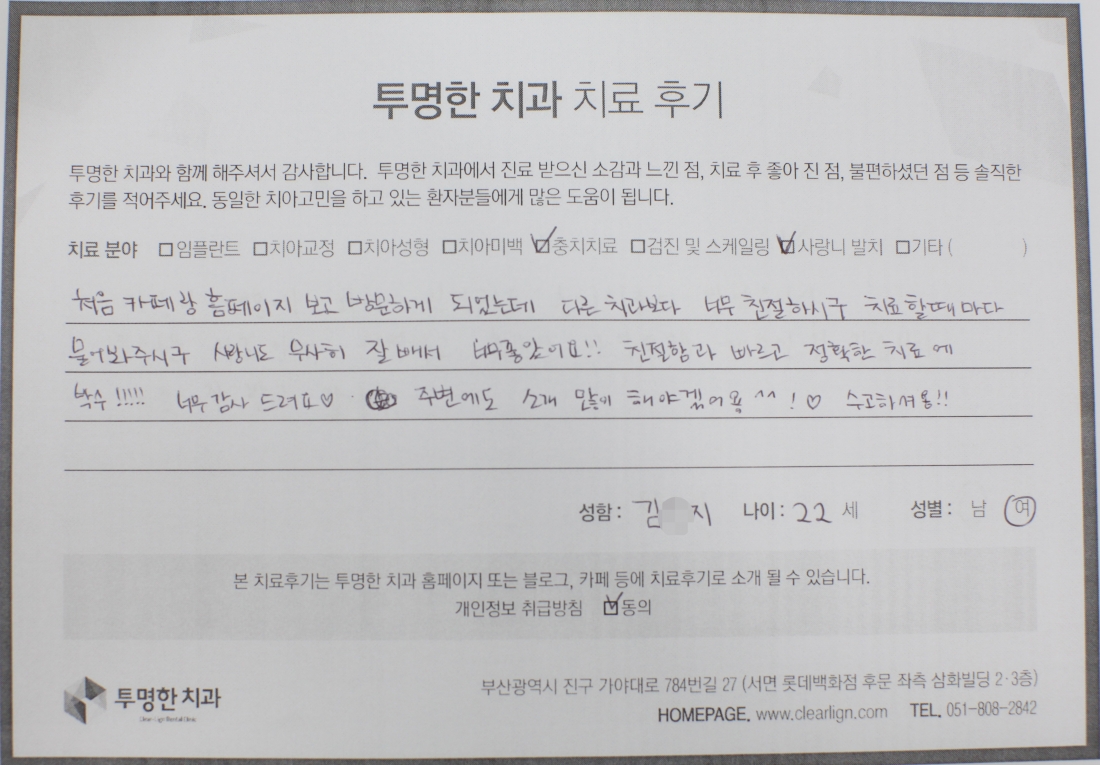 투명한 치과 치료 후기
투명한 치과와 함께 해주셔서 감사합니다. 투명한 치과에서 진료 받으신 소감과 느낀 점, 치료 후 좋아 진 점, 불편하셨던 점 등 솔직한
후기를 적어주세요. 동일한 치아고민을 하고 있는 환자분들에게 많은 도움이 됩니다.
치료 분야 □임플란트 □치아교정 □치아성형 □치아미백 ☑충치치료 □검진 및 스케일링 ☑사랑니 발치 □기타 ( )
처음 카페랑 홈페이지 보고 방문하게 되었는데 다른 치과보다 너무 친절하시구 치료할때마다
물어봐주시구 사랑니도 무사히 잘 빼서 너무좋았어요!! 친절함과 빠르고 정확한 치료에
박수!!!!! 너무 감사 드려요♡ 주변에도 소개 많이 해야겠어용^^!♡ 수고하셔용!!
성함: 김 지 나이: 22 세 성별: 남 여
본 치료후기는 투명한 치과 홈페이지 또는 블로그, 카페 등에 치료후기로 소개 될 수 있습니다.
개인정보 취급방침 ☑동의
투명한 치과
부산광역시 진구 가야대로 784번길 27 (서면 롯데백화점 후문 좌측 삼화빌딩 2·3층)
HOMEPAGE. www.clearlign.com TEL. 051-808-2842